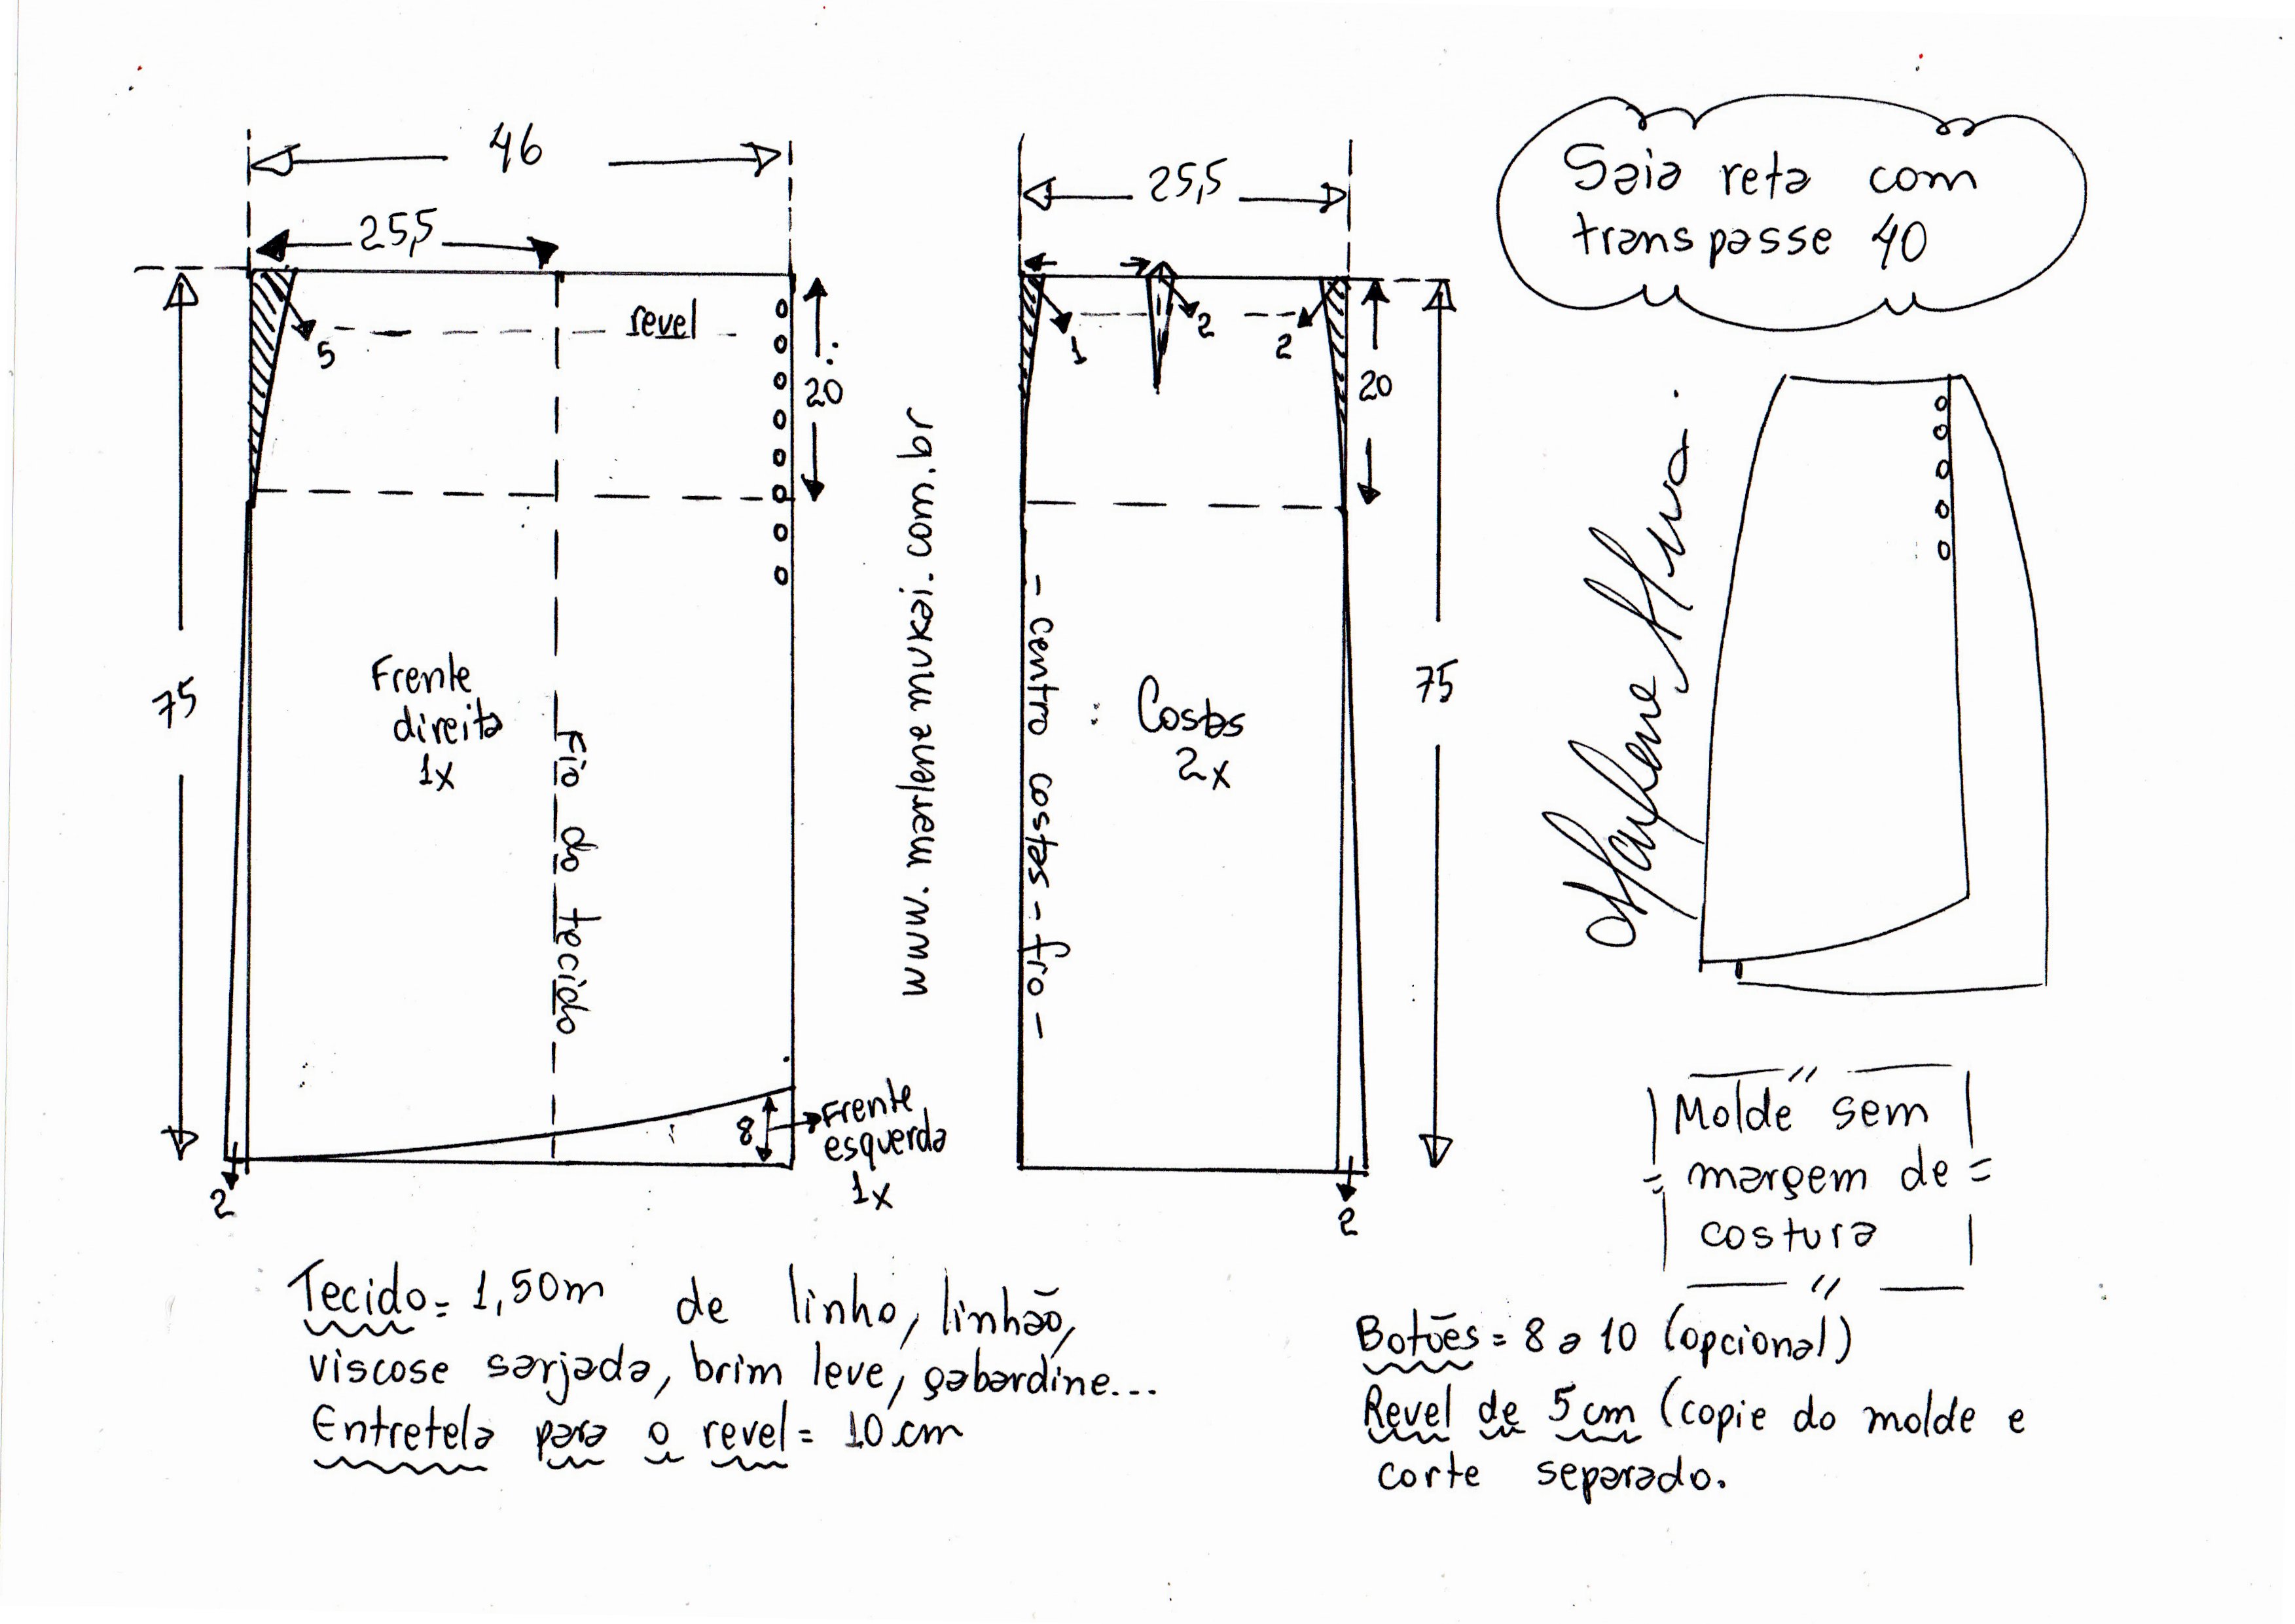 46
25,5
25,5
Saia reta com
transpasse 40
revel
5
20
1
2
2
20
75
75
Frente
direita
1x
Fio do tecido
www.marlenemukai.com.br
- centro costas - fio -
Costas
2x
Marlene Mukai
8
Frente
esquerda
1x
2
2
Molde sem
margem de
costura
Tecido = 1,50m de linho, linhão,
viscose sarjada, brim leve, gabardine...
Entretela para o revel = 10 cm
Botões = 8 a 10 (opcional)
Revel de 5 cm (copie do molde e
corte separado.